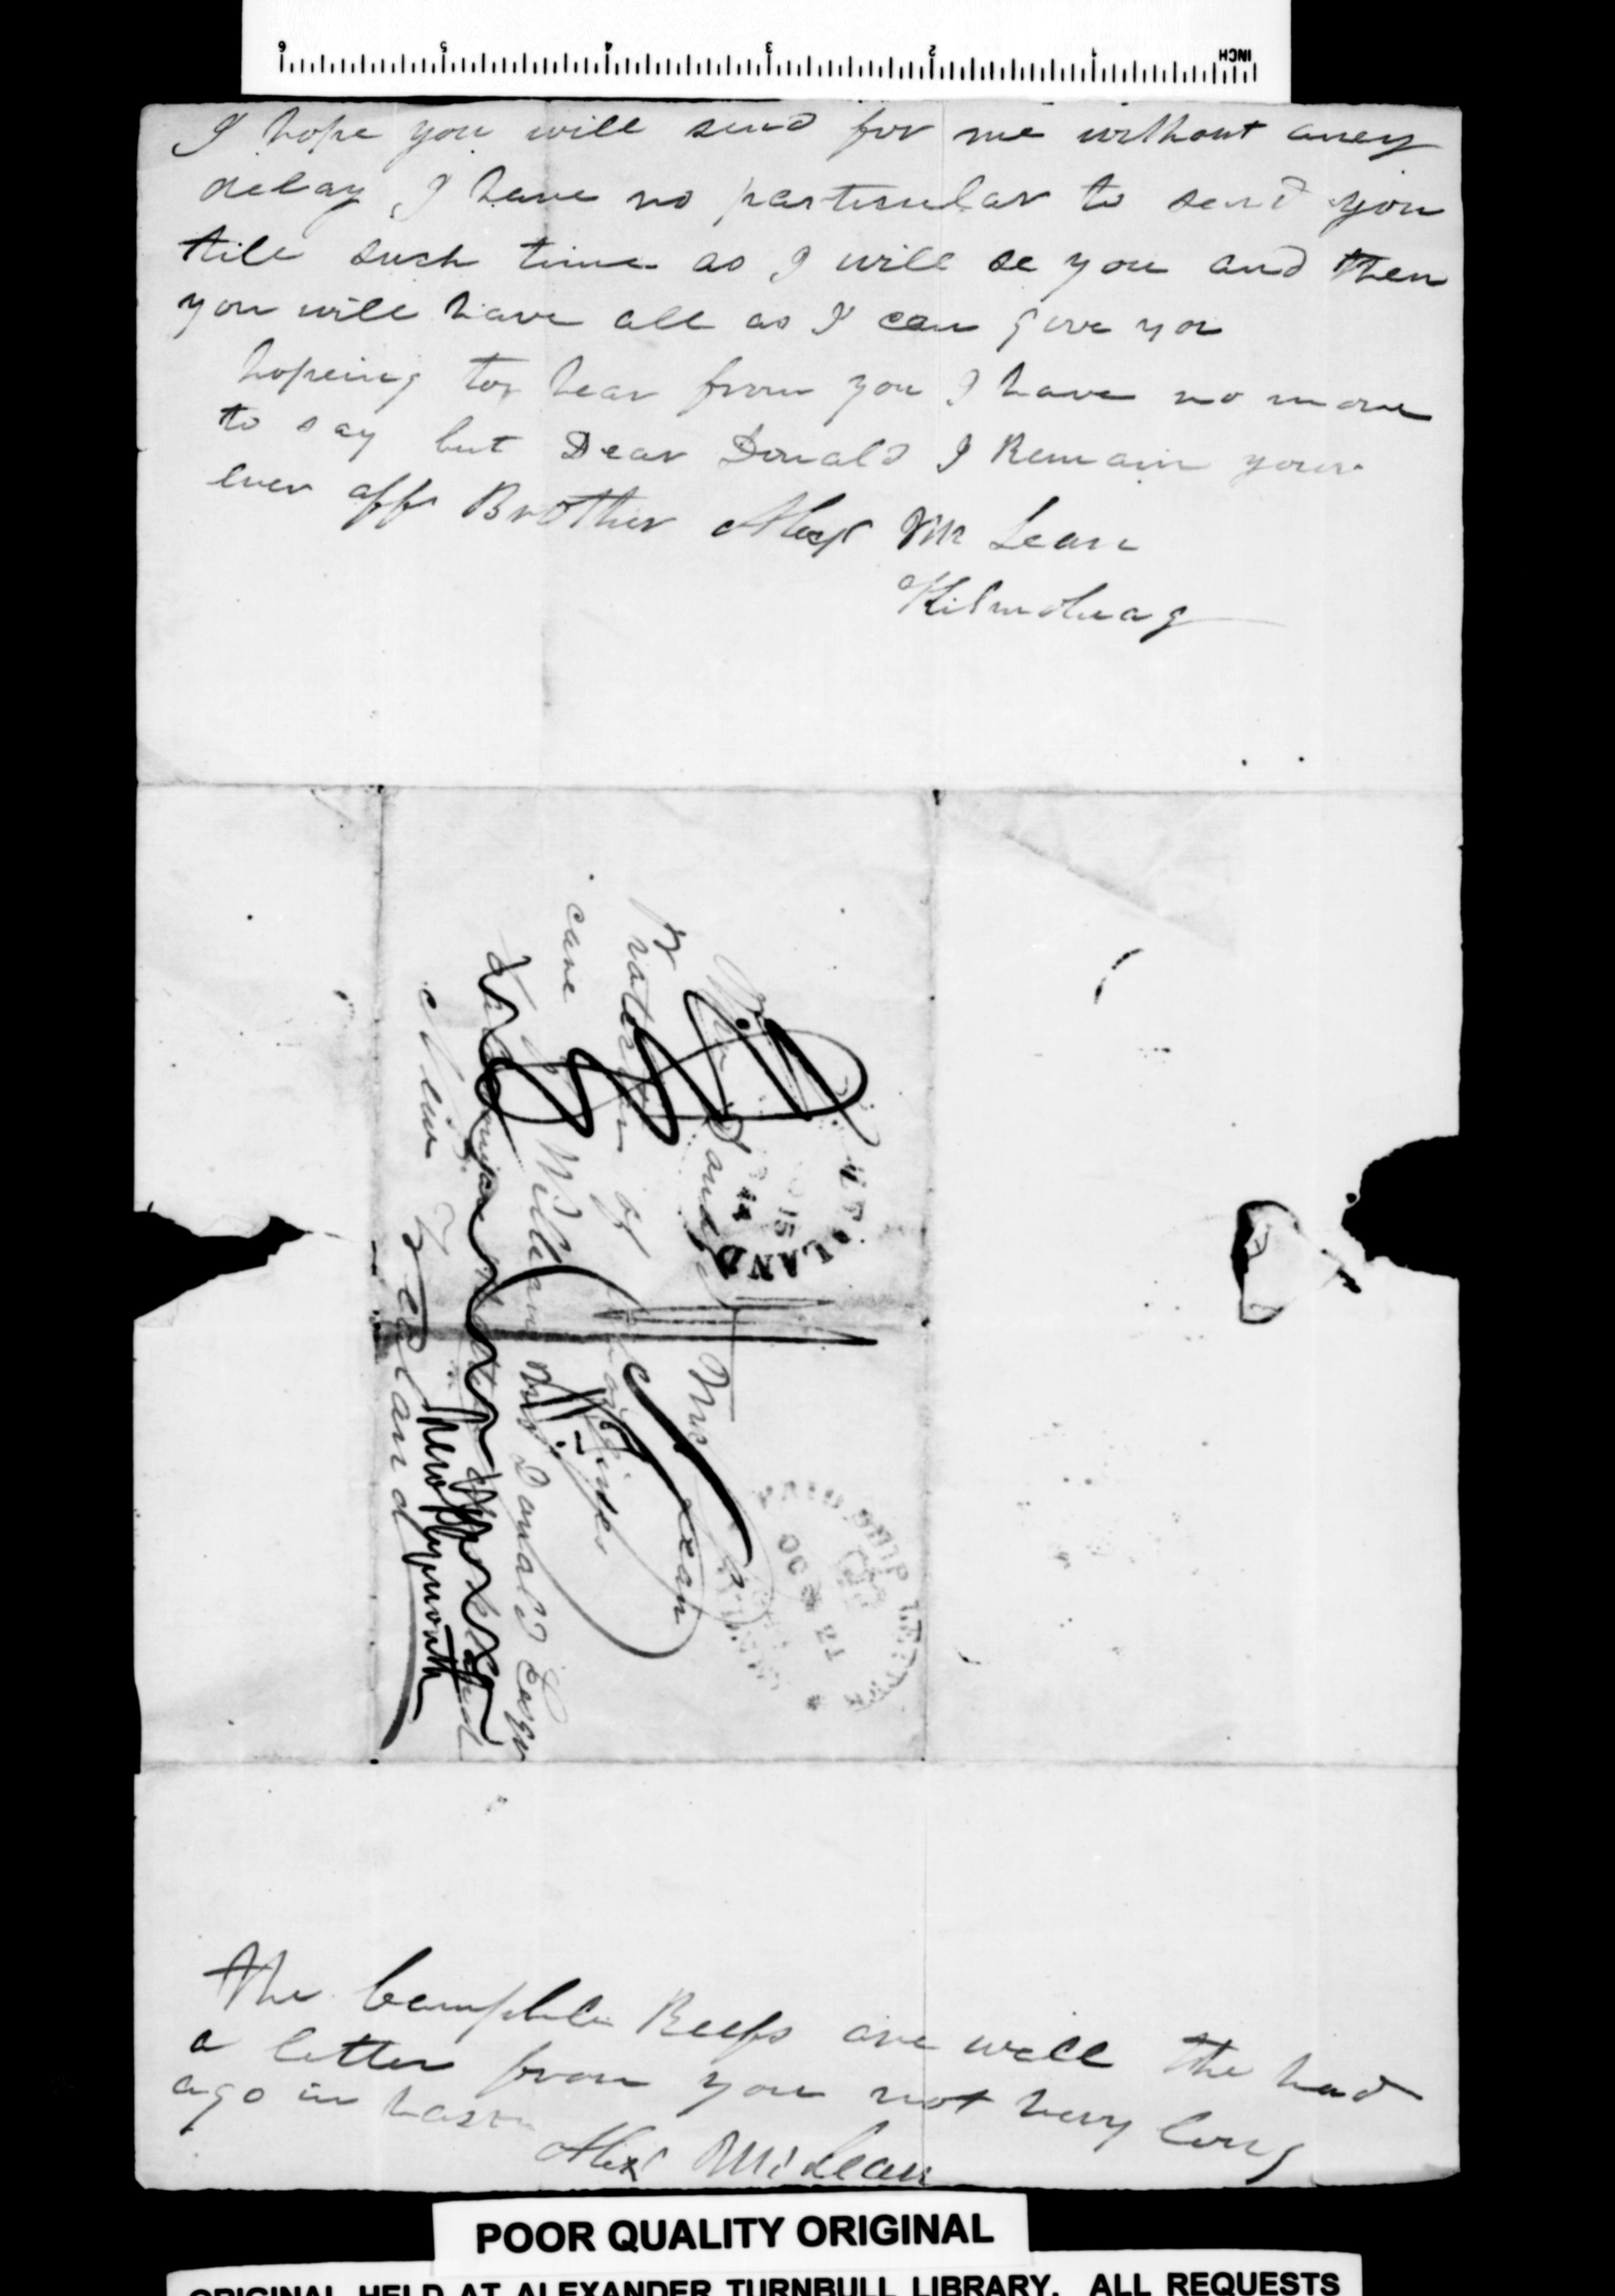 INCH 1 2 3 4 5 6
I hope you will send for me without aney
delay I have no particular to send you
till such time as I will se you and then
you will have all as I can give you
hopeing to hear from you I have no more
to say but Dear Donald I Remain yours
ever afft Brother Alexr McLean
Kilmoluag
Mr Donald McLean
Protector of
care of William McDonald Esqr
New Plymouth
New Zealand
SHIP LETTER
OC
The Campbell are well the had
a letter from you not very long
ago in haste
Alexr McLean
POOR QUALITY ORIGINAL
ORIGINAL HELD AT ALEXANDER TURNBULL LIBRARY. ALL REQUESTS